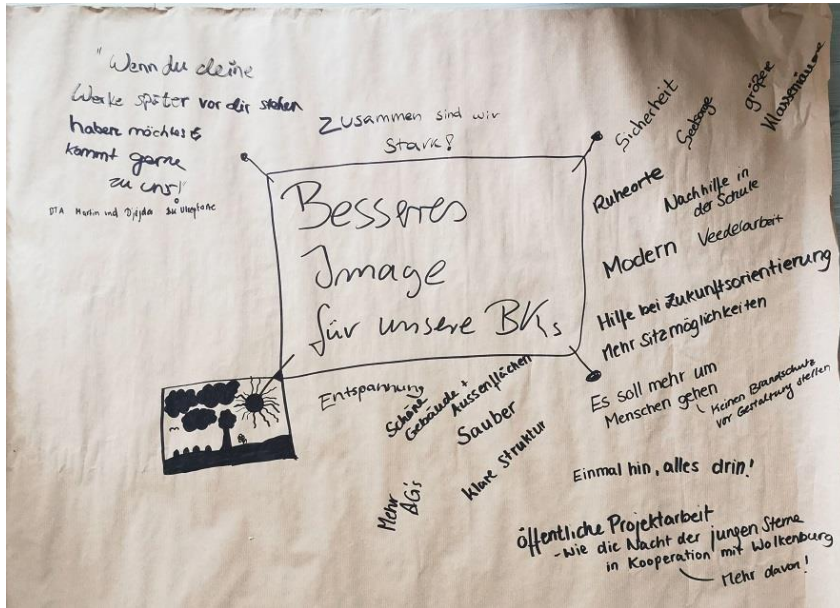 "Wenn du deine
Werke später vor dir stehen
haben möchtest
kommt gerne
zu uns!"
DTA Martin und
Zusammen sind wir
stark!
Besseres
Image
für unsere BKs
Sicherheit
Seelsorge
größere
Klassenräume
Ruheorte
Nachhilfe in
der Schule
Modern
Veedelarbeit
Hilfe bei Zukunftsorientierung
Mehr Sitzmöglichkeiten
Es soll mehr um
Menschen gehen
Keinen Brandschutz
vor Gestaltung stellen
Entspannung
Schöne
Gebäude +
Aussenflächen
Sauber
klare Struktur
Mehr
AG's
Einmal hin, alles drin!
öffentliche Projektarbeit
-wie die Nacht der jungen Sterne
in Kooperation mit Wolkenburg
Mehr davon!